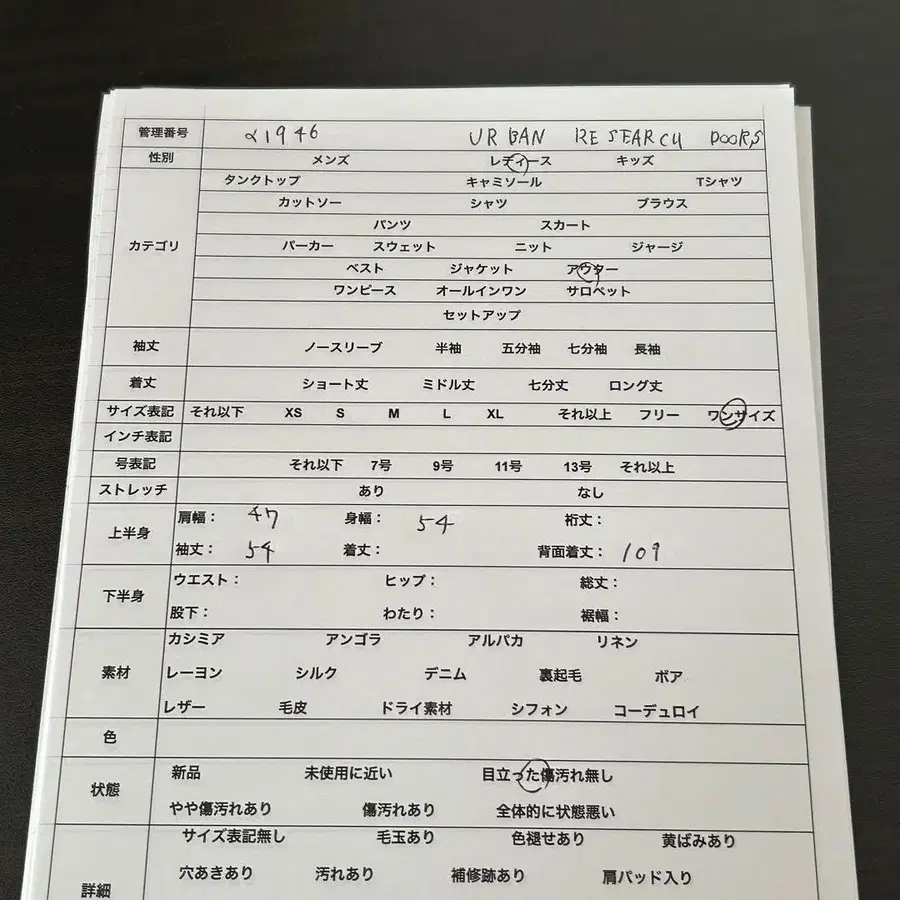 管理番号 α1946 URBAN RESEARCH DOORS
性別 メンズ レディース キッズ
タンクトップ キャミソール Tシャツ
カットソー シャツ ブラウス
パンツ スカート
カテゴリ パーカー スウェット ニット ジャージ
ベスト ジャケット アウター
ワンピース オールインワン サロペット
セットアップ
袖丈 ノースリーブ 半袖 五分袖 七分袖 長袖
着丈 ショート丈 ミドル丈 七分丈 ロング丈
サイズ表記 それ以下 XS S M L XL それ以上 フリー ワンサイズ
インチ表記
号表記 それ以下 7号 9号 11号 13号 それ以上
ストレッチ あり なし
上半身 肩幅： 47 身幅： 54 裄丈：
袖丈： 54 着丈： 背面着丈： 109
下半身 ウエスト： ヒップ： 総丈：
股下： わたり： 裾幅：
カシミア アンゴラ アルパカ リネン
素材 レーヨン シルク デニム 裏起毛 ボア
レザー 毛皮 ドライ素材 シフォン コーデュロイ
色
状態 新品 未使用に近い 目立った傷汚れ無し
やや傷汚れあり 傷汚れあり 全体的に状態悪い
サイズ表記無し 毛玉あり 色褪せあり 黄ばみあり
詳細 穴あきあり 汚れあり 補修跡あり 肩パッド入り